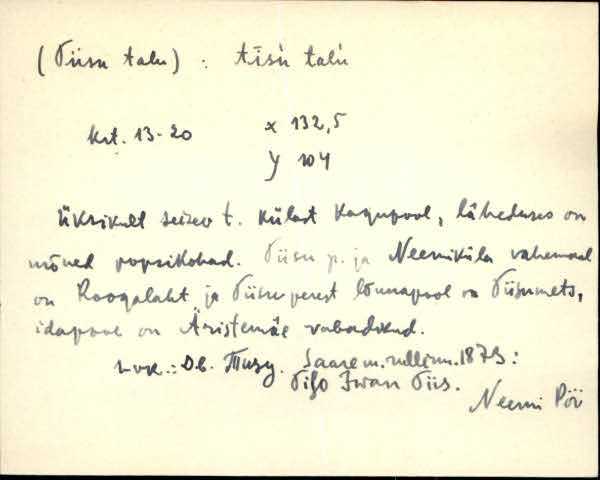 (Tiisu talu) : tīsu talu
krt. 13-20 x 132,5
y 104
üksikult seisev t. külast kagupool, läheduses on
mõned popsikohad. Tiisu p. ja Neemiküla vahemaal
on Roogalaht ja Tiisu perest lõunapool on Tiisumets,
idapool on Äristemäe vabadikud.
Дв. Тизу. Saarem. 1873:
Iwan Tiis.
Neemi Pöi